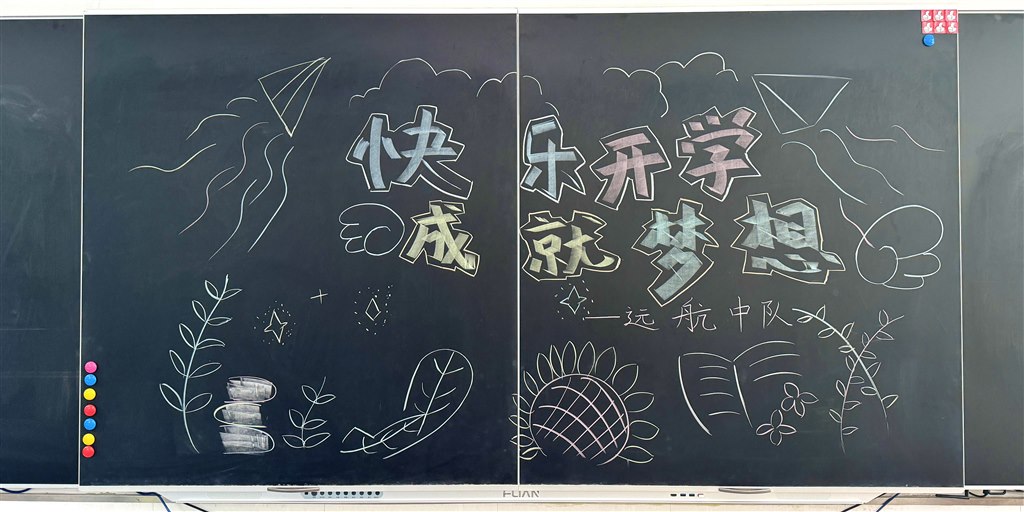 快乐开学
成就梦想
—远航中队